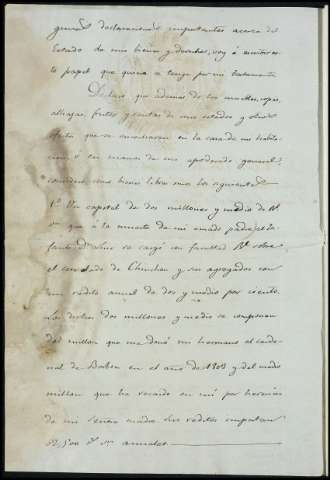 generales declaraciones importantes acerca del
Estado de mis bienes y deudas, voy á escribir es-
te papel que quiero se tenga por mi testamento.
Declaro que ademas de los muebles, ropas,
alhajas, frutos y rentas de mis estados y otros
efectos que se encontraren en la casa de mi habita-
cion ó en manos de mi apoderado general,
considero mis bienes libres son los siguientes
1º Un capital de dos millones y medio de Rs
vn que á la muerte de mi amado padre el In-
fante Dn Luis se cargó con facultad Rl sobre
el condado de Chinchon y sus agregados con
un rédito anual de dos y medio por ciento.
Los dichos dos millones y medio se componen
del millon que me donó mi hermano el carde-
nal de Borbon en el año de 1803 y del medio
millon que ha recaido en mí por herencia
de mi Senora madre. Sus réditos importan
62,500 rs vn annuales